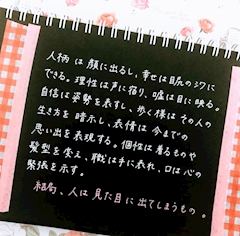 人柄は顔に出るし、幸せは目尻のシワに
できる。理性は声に宿り、嘘は目に映る。
自信は姿勢を表すし、歩く様はその人の
生き方を暗示し、表情は今までの
思い出を表現する。個性は着るものや
髪型を変え、職は手に表れ、口は心の
緊張を示す。
結局、人は見た目に出てしまうもの。